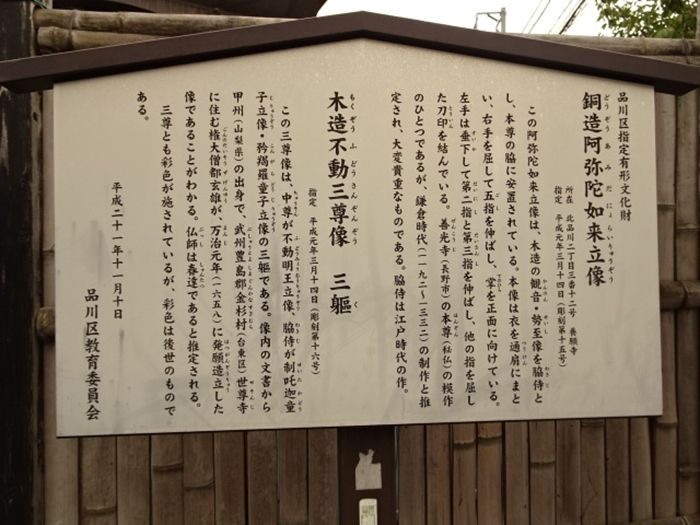 品川区指定有形文化財
銅造阿弥陀如来立像
どうぞうあみだにょらいりゅうぞう
所在 北品川二丁目三番十二号 養願寺
指定 平成元年三月十四日(彫刻第十五号)
この阿弥陀如来立像は、木造の観音・勢至像を脇侍と
し、本尊の脇に安置されている。本像は衣を通肩にまと
い、右手を屈して五指を伸ばし、掌を正面に向けている。
左手は垂下して第二指と第三指を伸ばし、他の指を屈し
た刀印を結んでいる。善光寺(長野市)の本尊(秘仏)の模作
のひとつであるが、鎌倉時代(一一九二〜一三三二)の制作と推
定され、大変貴重なものである。脇侍は江戸時代の作。
木造不動三尊像 三軀
もくぞうふどうさんぞんぞう く
指定 平成元年三月十四日(彫刻第十六号)
この三尊像は、中尊が不動明王立像、脇侍が制吒迦童
子立像・矜羯羅童子立像の三軀である。像内の文書から
甲州(山梨県)の出身で、武州豊島郡金杉村(台東区)世尊寺
に住む権大僧都玄雄が、万治元年(一六五八)に発願造立した
像であることがわかる。仏師は春達であると推定される。
三尊とも彩色が施されているが、彩色は後世のもので
ある。
平成二十一年十一月十日
品川区教育委員会